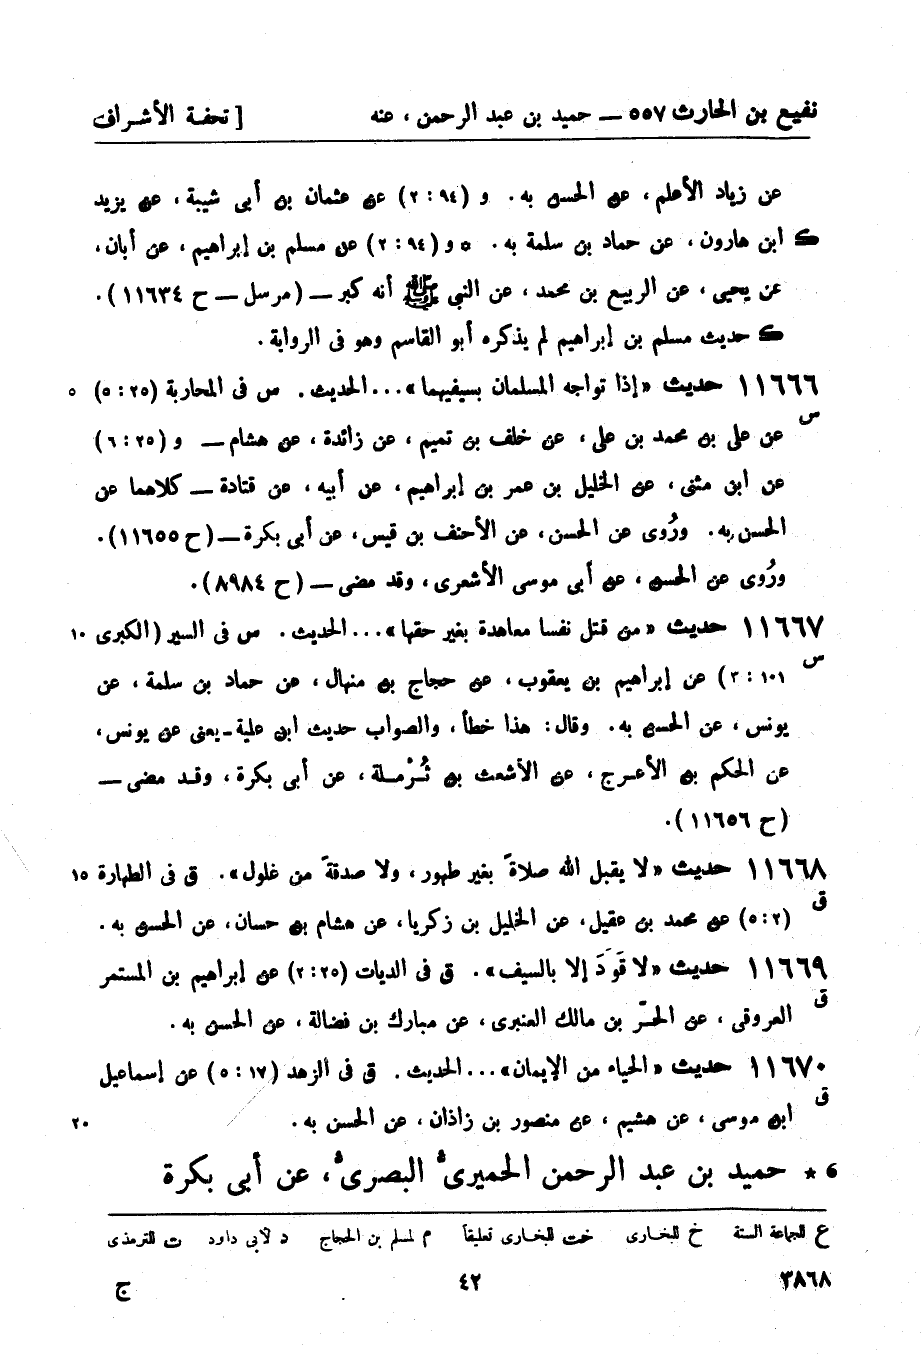 نفيع بن الحارث ٥٥٧ — حميد بن عبد الرحمن ، عنه [ تحفة الأشراف
عن زياد الأعلم ، عن الحسن به . و (٩٤ : ٢) عن عثمان بن أبى شيبة ، عن يزيد
ك ابن هارون ، عن حماد بن سلمة به . ٥ و (٩٤ : ٢) عن مسلم بن إبراهيم ، عن أبان ،
عن يحيى ، عن الربيع بن محمد ، عن النبي ﷺ أنه كبر — (مرسل — ح ١١٦٣٤) .
ك حديث مسلم بن إبراهيم لم يذكره أبو القاسم وهو فى الرواية .
١١٦٦٦ حديث «إذا تواجه المسلمان بسيفيهما» . . . الحديث . س فى المحاربة (٢٥ : ٥) ٥
س عن على بن محمد بن على ، عن خلف بن تميم ، عن زائدة ، عن هشام — و (٢٥ : ٦)
عن ابن مثنى ، عن الخليل بن عمر بن إبراهيم ، عن أبيه ، عن قتادة — كلاهما عن
الحسن به . ورُوى عن الحسن ، عن الأحنف بن قيس ، عن أبى بكرة — (ح ١١٦٥٥) .
ورُوى عن الحسن ، عن أبى موسى الأشعرى ، وقد مضى — (ح ٨٩٨٤) .
١١٦٦٧ حديث «من قتل نفسا معاهدة بغير حقها» . . . الحديث . س فى السير (الكبرى ١٠
س ١٠١ : ٣) عن إبراهيم بن يعقوب ، عن حجاج بن منهال ، عن حماد بن سلمة ، عن
يونس ، عن الحسن به . وقال : هذا خطأ ، والصواب حديث ابن علية - يعنى عن يونس ،
عن الحكم بن الأعرج ، عن الأشعث بن ثُرْملة ، عن أبى بكرة ، وقد مضى —
(ح ١١٦٥٦) .
١١٦٦٨ حديث «لا يقبل الله صلاةً بغير طهور ، ولا صدقةً من غلول» . ق فى الطهارة ١٥
ق (٢ : ٥) عن محمد بن عقيل ، عن الخليل بن زكريا ، عن هشام بن حسان ، عن الحسن به .
١١٦٦٩ حديث «لا قَوَدَ إلا بالسيف» . ق فى الديات (٢٥ : ٢) عن إبراهيم بن المستمر
ق العروقى ، عن الحرّ بن مالك العنبرى ، عن مبارك بن فضالة ، عن الحسن به .
١١٦٧٠ حديث «الحياء من الإيمان» . . . الحديث . ق فى الزهد (١٧ : ٥) عن إسماعيل
ق ابن موسى ، عن هشيم ، عن منصور بن زاذان ، عن الحسن به . ٢٠
6 * حميد بن عبد الرحمن الحميرى البصرى ، عن أبى بكرة
ع للجماعة الستة خ للبخارى خت للبخارى تعليقاً م لمسلم بن الحجاج د لأبى داود ت للترمذى
٣٨٦٨ ٤٢ ج